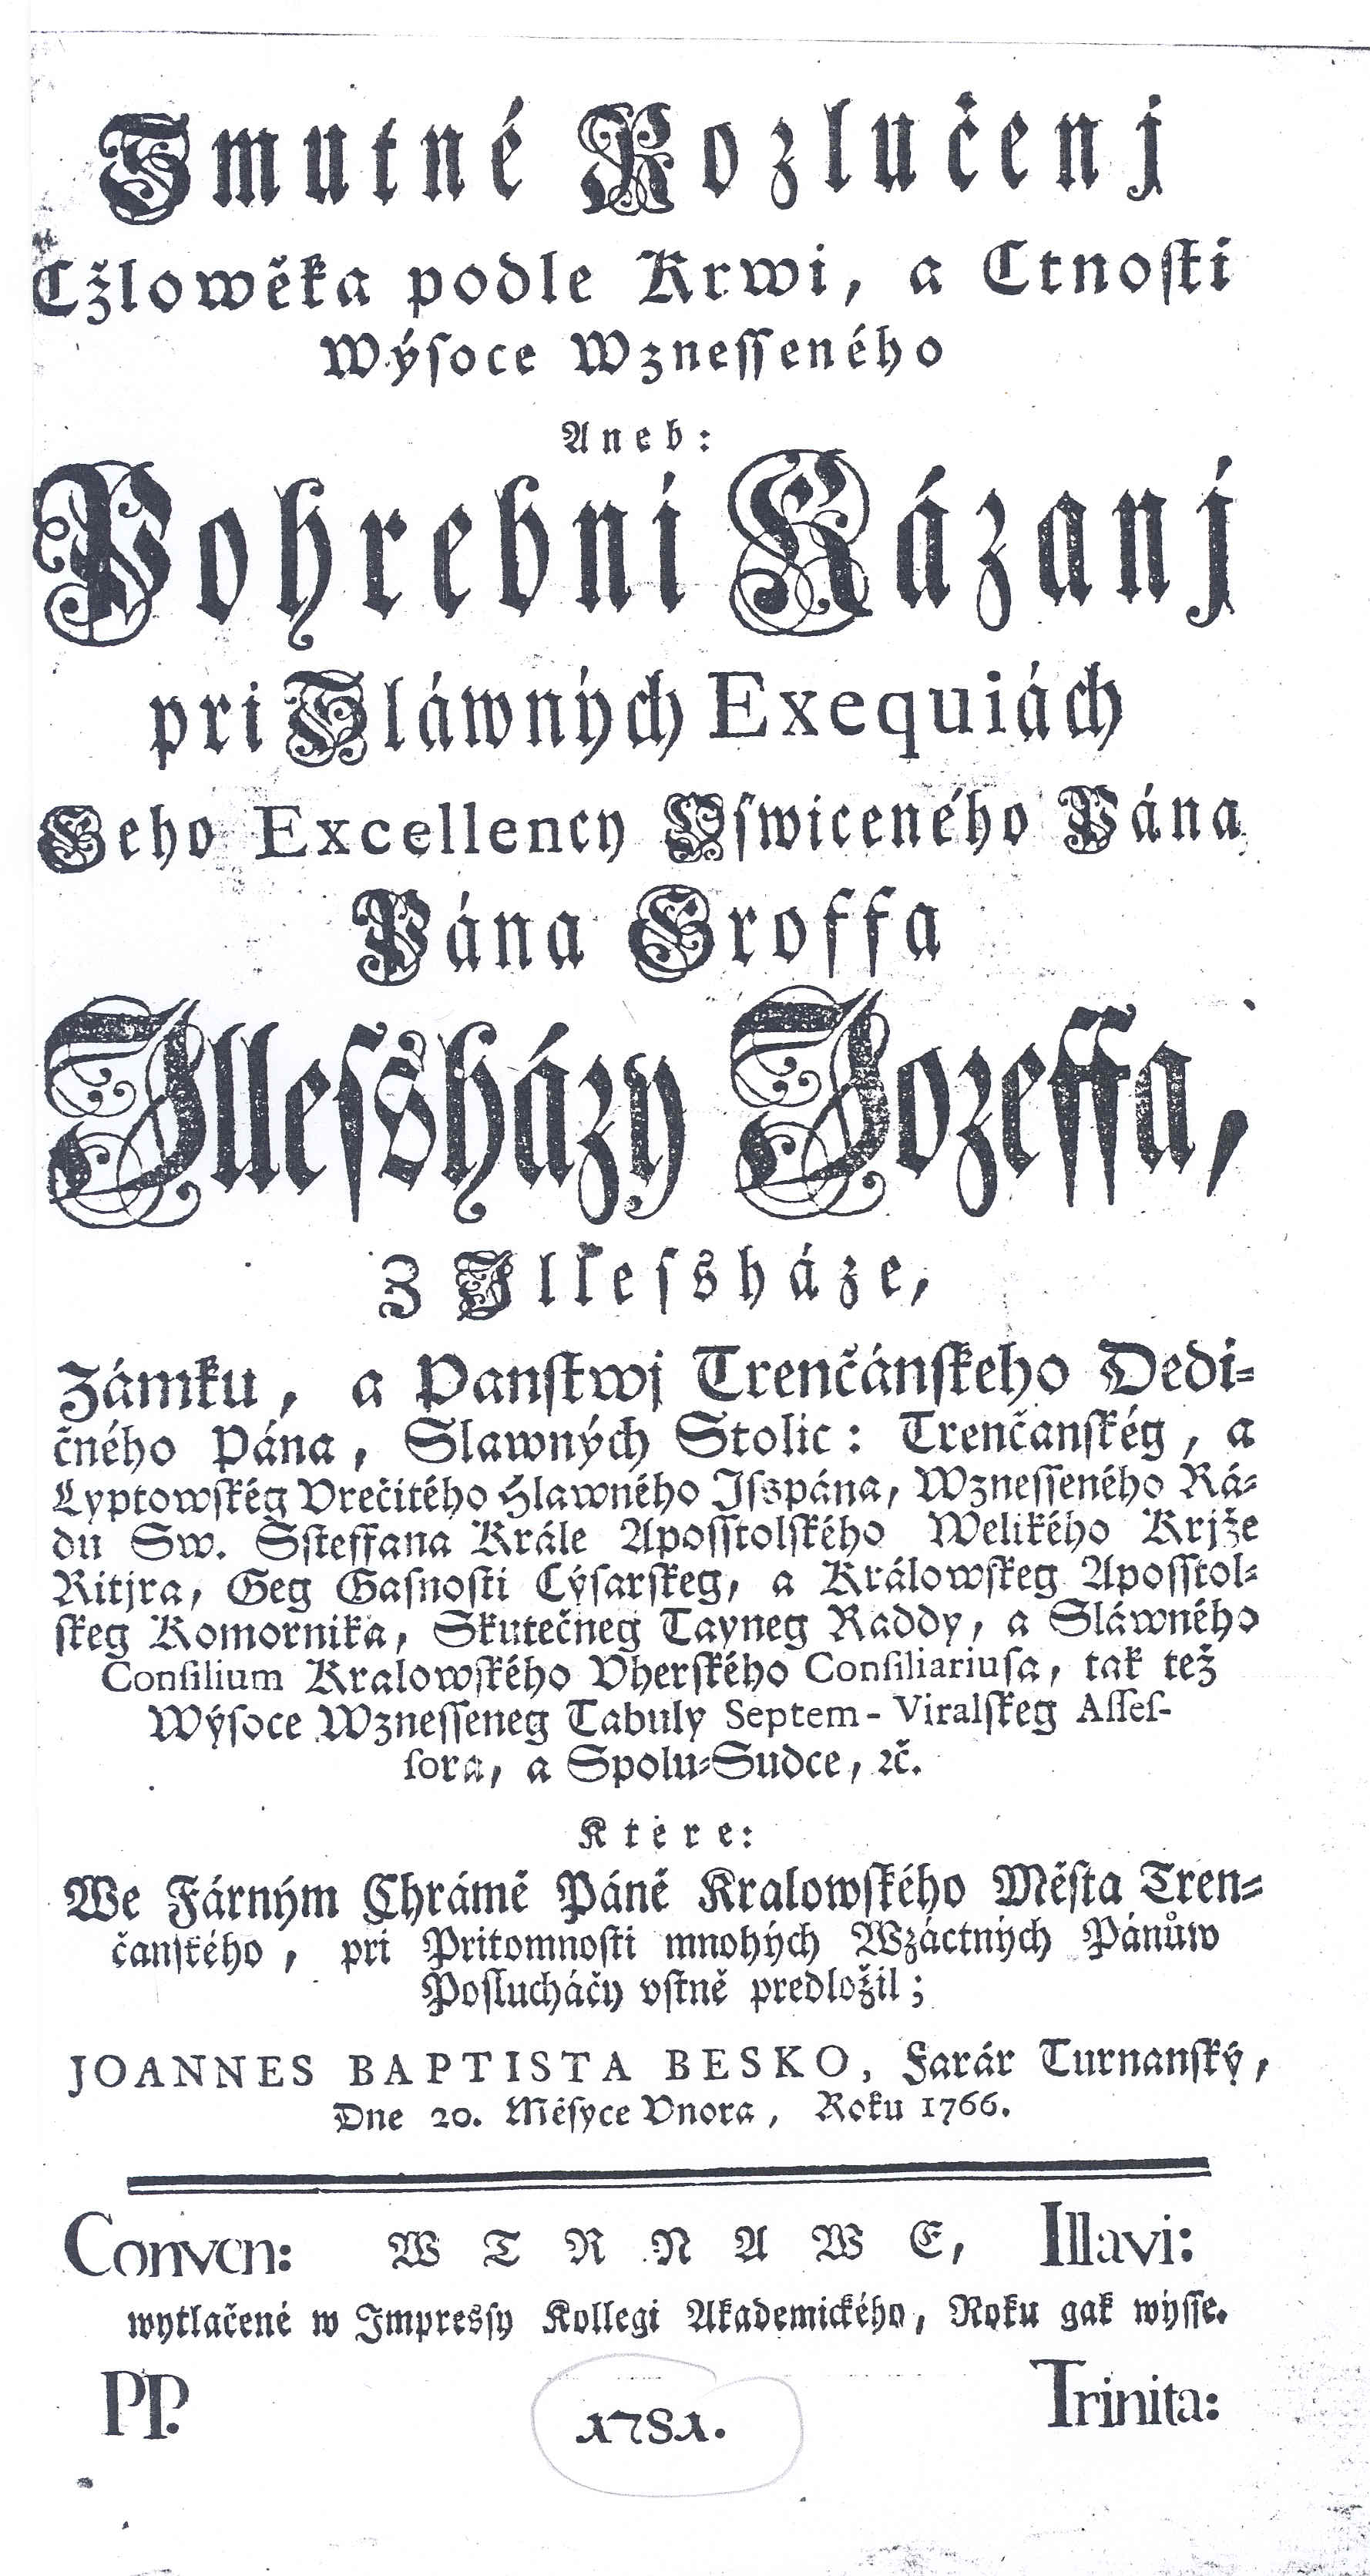 Smutné Rozlučenj
Cžlowěka podle Krwi, a Ctnosti
Wýsoce Wznesseného
Aneb:
Pohrebni Kázanj
pri Sláwných Exequiách
Geho Excellency Oswiceného Pána
Pána Groffa
Illessházy Jozeffa,
Z Illessháze,
Zámku, a Panstwj Trenčánskeho Dedi-
čného Pána, Slawných Stolic: Trenčanskég, a
Lyptowskég Vrečitého Hlawného Isspána, Wznesseného Rá-
du Sw. Ssteffana Krále Aposstolského Welikého Krjže
Ritjra, Geg Gasnosti Cýsarskeg, a Králowskeg Aposstol-
skeg Komornika, Skutečneg Tayneg Raddy, a Sláwného
Consilium Kralowského Vherského Consiliariusa, tak též
Wýsoce Wznesseneg Tabuly Septem-Viralskeg Asses-
sora, a Spolu-Sudce, ꝛč.
Ktere:
We Fárným Chrámě Páně Kralowského Města Tren-
čanského, pri Pritomnosti mnohých Wzáctných Pánůw
Poslucháčy vstně predložil;
JOANNES BAPTISTA BESKO, Farár Turnanský,
Dne 20. Měsyce Vnora, Roku 1766.
Conven: W TRNAWE, Illavi:
wytlačené w Impressy Kollegi Akademického, Roku gak wýsse.
PP. 1781. Trinita: